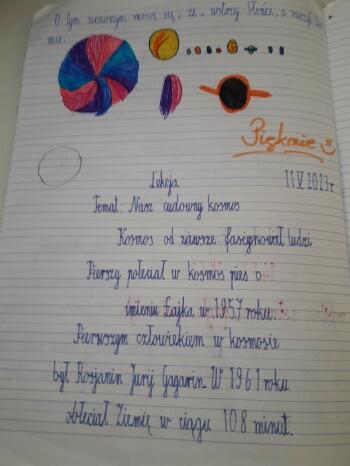 O tym uczonym mówi się, że „wstrzy Słońce, a ruszył Zie
mię.
Pięknie
Lekcja 11 V 2023 r
Temat: Nasz cudowny kosmos
Kosmos od zawsze fascynował ludzi
Pierszy poleciał w kosmos pies o
imieniu Łajka w 1957 roku.
Pierwszym człowiekiem w kosmosie
był Rosjanin Jurij Gagarin. W 1961 roku
obleciał Ziemię w ciągu 108 minut.